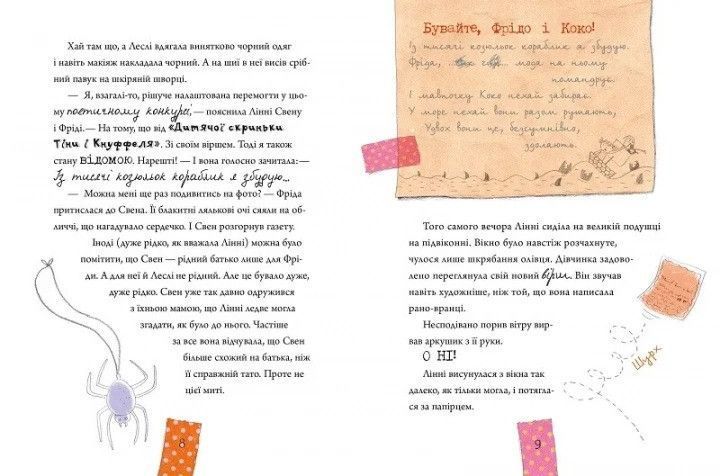 Хай там що, а Леслі вдягала винятково чорний одяг
і навіть макіяж накладала чорний. А на шиї в неї висів сріб-
ний павук на шкіряній шворці.
— Я, взагалі-то, рішуче налаштована перемогти у цьо-
му поетичному конкурсі, — пояснила Лінні Свену
і Фріді.— На тому, що від «Дитячої скриньки
Тіни і Кнуффеля». Зі своїм віршем. Тоді я також
стану ВІДОМОЮ. Нарешті! — І вона голосно зачитала:—
Із тисячі козюльок кораблик я збудую...
— Можна мені ще раз подивитись на фото? — Фріда
притислася до Свена. Її блакитні лялькові очі сяяли на об-
личчі, що нагадувало сердечко. І Свен розгорнув газету.
Іноді (дуже рідко, як вважала Лінні) можна було
помітити, що Свен — рідний батько лише для Фрі-
ди. А для неї й Леслі не рідний. Але це бувало дуже,
дуже рідко. Свен уже так давно одружився
з їхньою мамою, що Лінні ледве могла
згадати, як було до нього. Частіше
за все вона відчувала, що Свен
більше схожий на батька, ніж
її справжній тато. Проте не
цієї миті.
8
Бувайте, Фрідо і Коко!
Із тисячі козюльок кораблик я збудую.
Фріда, мода на ньому
помандрує.
І мавпочку Коко нехай забирає.
У море нехай вони разом рушають,
Удвох вони це, безсумнівно,
здолають.
Того самого вечора Лінні сиділа на великій подушці
на підвіконні. Вікно було навстіж розчахнуте,
чулося лише шкрябання олівця. Дівчинка задово-
лено переглянула свій новий вірш. Він звучав
навіть художніше, ніж той, що вона написала
рано-вранці.
Несподівано порив вітру вир-
вав аркушик з її руки.
О НІ!
Лінні висунулася з вікна так
далеко, як тільки могла, і потягла-
ся за папірцем.
Шурх
9